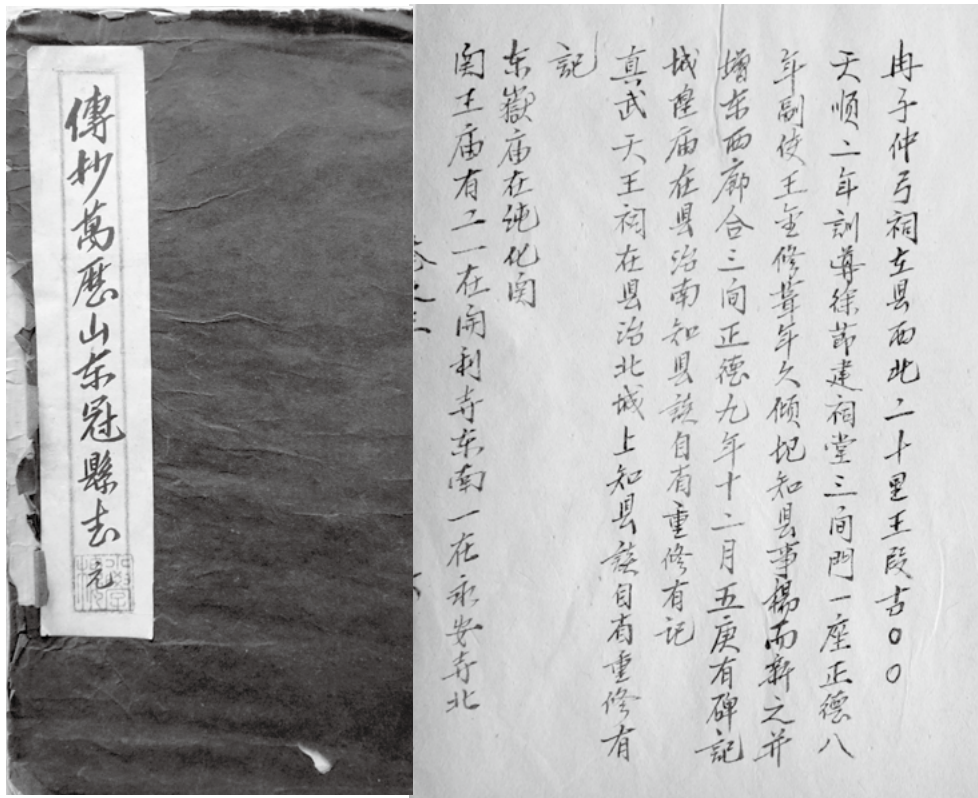 傳抄萬曆山东冠縣志
元
冉子仲弓祠在县西北二十里王段古〇〇
天顺二年訓導徐節建祠堂三间門一座正德八
年副使王金修葺年久倾圮知县事楊而新之并
增东西廊合三间正德九年十二月五庚有碑記
城隍庙在县治南知县談自省重修有记
真武天王祠在县治北城上知县談自省重修有
記
东嶽庙在纯化関
関王庙有二一在開利寺东南一在永安寺北